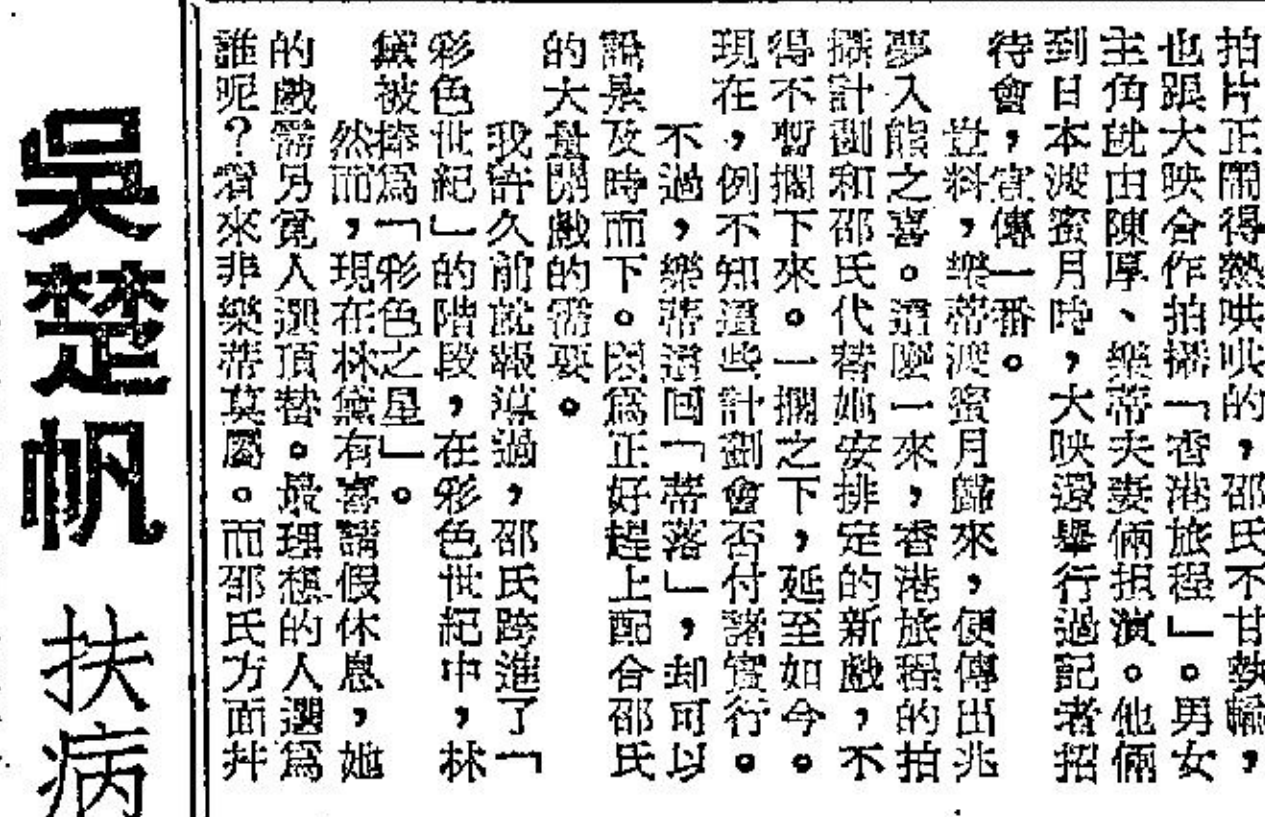 拍片正鬧得熱哄哄的，邵氏不甘執輸，
也跟大映合作拍攝「香港旅程」。男女
主角就由陳厚、樂蒂夫妻倆担演。他倆
到日本渡蜜月時，大映還舉行過記者招
待會，宣傳一番。
豈料，樂蒂渡蜜月歸來，便傳出兆
夢入熊之喜。這麼一來，香港旅程的拍
攝計劃和邵氏代替她安排定的新戲，不
得不暫擱下來。一擱之下，延至如今。
現在，例不知這些計劃會否付諸實行。
不過，樂蒂這回「蒂落」，却可以
說是及時而下。因爲正好趕上配合邵氏
的大量開戲的需要。
我許久前就報導過，邵氏跨進了「
彩色世紀」的階段，在彩色世紀中，林
黛被捧爲「彩色之星」。
然而，現在林黛有喜請假休息，她
的戲需另覓人選頂替。最理想的人選爲
誰呢？看來非樂蒂莫屬。而邵氏方面幷
吳楚帆 扶病